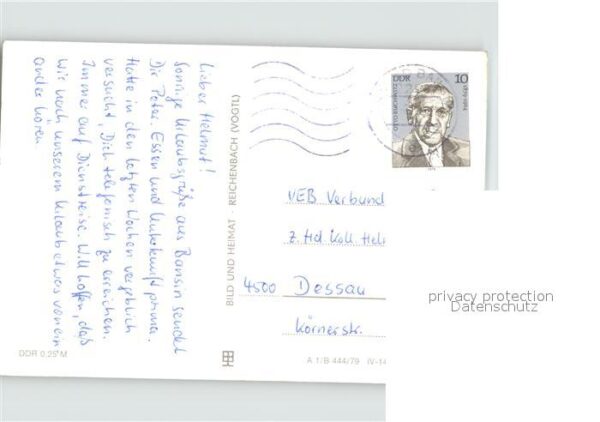 Lieber Helmut!
Sonnige Urlaubsgrüße aus Bansin sendet
Dir Peter. Essen und Unterkunft prima.
Hatte in den letzten Wochen vergeblich
versucht, Dich telefonisch zu erreichen.
Immer auf Dienstreise. Will hoffen, daß
wir nach unserem Urlaub etwas von ein
ander hören.
DDR 0,25 M
BILD UND HEIMAT · REICHENBACH (VOGTL)
DDR 10
OTTO BUCHWITZ
1879-1964
1979
VEB Verbund
z. Hd Koll. Hel
4500 Dessau
Körnerstr.
A 1/B 444/79 IV-14
privacy protection
Datenschutz